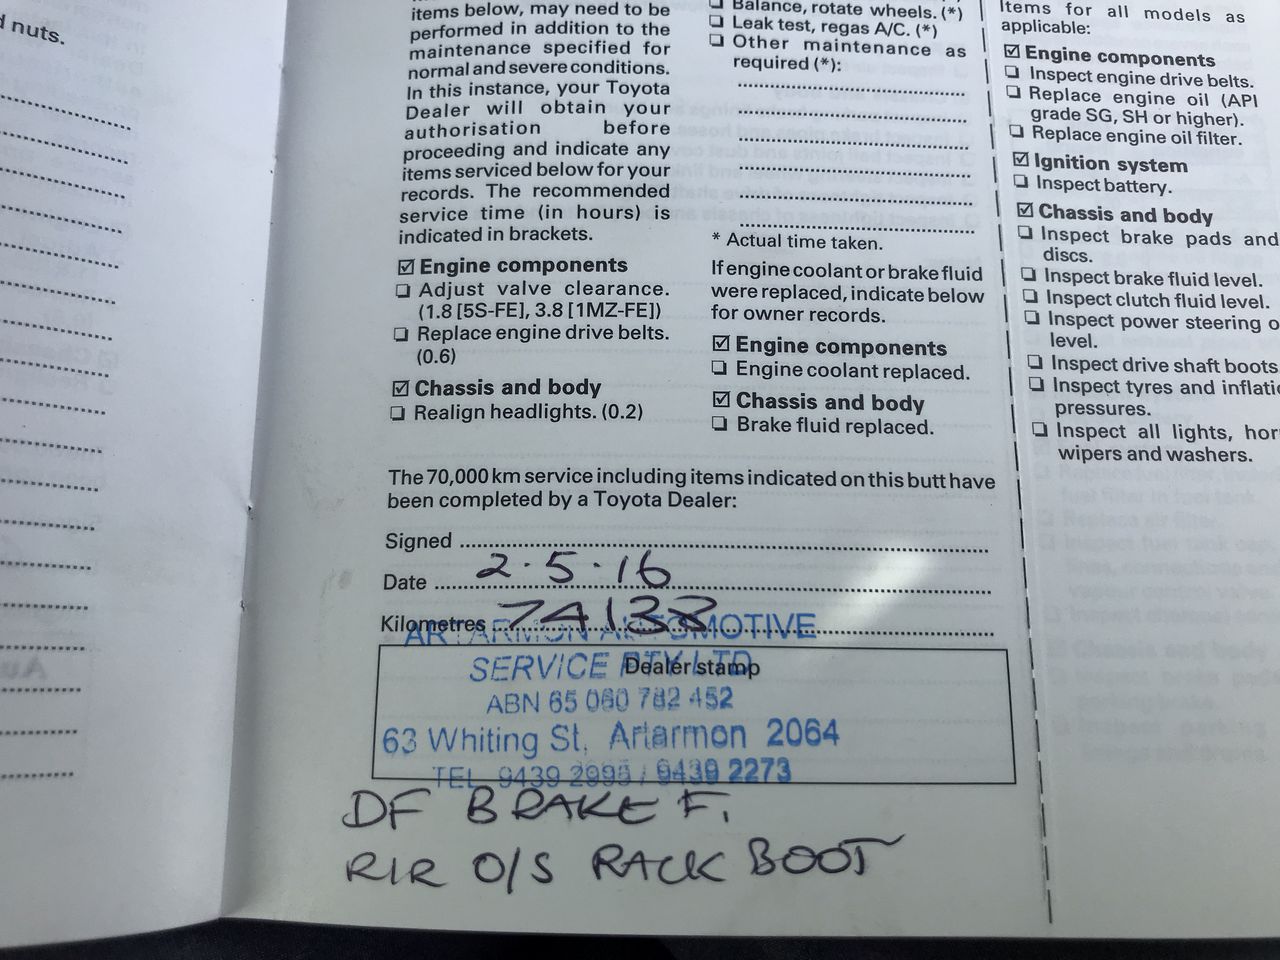 d nuts.
items below, may need to be
performed in addition to the
maintenance specified for
normal and severe conditions.
In this instance, your Toyota
Dealer will obtain your
authorisation before
proceeding and indicate any
items serviced below for your
records. The recommended
service time (in hours) is
indicated in brackets.
Engine components
Adjust valve clearance.
(1.8 [5S-FE], 3.8 [1MZ-FE])
Replace engine drive belts.
(0.6)
Chassis and body
Realign headlights. (0.2)
Balance, rotate wheels. (*)
Leak test, regas A/C. (*)
Other maintenance as
required (*):
* Actual time taken.
If engine coolant or brake fluid
were replaced, indicate below
for owner records.
Engine components
Engine coolant replaced.
Chassis and body
Brake fluid replaced.
The 70,000 km service including items indicated on this butt have
been completed by a Toyota Dealer:
Signed
Date 2.5.16
Kilometres 74133
ARTARMON AUTOMOTIVE
SERVICE PTY LTD
Dealer stamp
ABN 65 060 782 452
63 Whiting St, Artarmon 2064
TEL 9439 2995 / 9439 2273
DF BRAKE F.
R/R O/S RACK BOOT
Items for all models as
applicable:
Engine components
Inspect engine drive belts.
Replace engine oil (API
grade SG, SH or higher).
Replace engine oil filter.
Ignition system
Inspect battery.
Chassis and body
Inspect brake pads and
discs.
Inspect brake fluid level.
Inspect clutch fluid level.
Inspect power steering o
level.
Inspect drive shaft boots
Inspect tyres and inflati
pressures.
Inspect all lights, hor
wipers and washers.